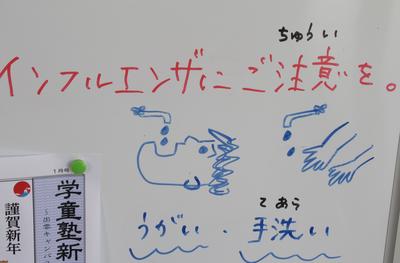 ちゅうい
インフルエンザにご注意を。
てあら
うがい・手洗い
1月
学童塾新
謹賀新年